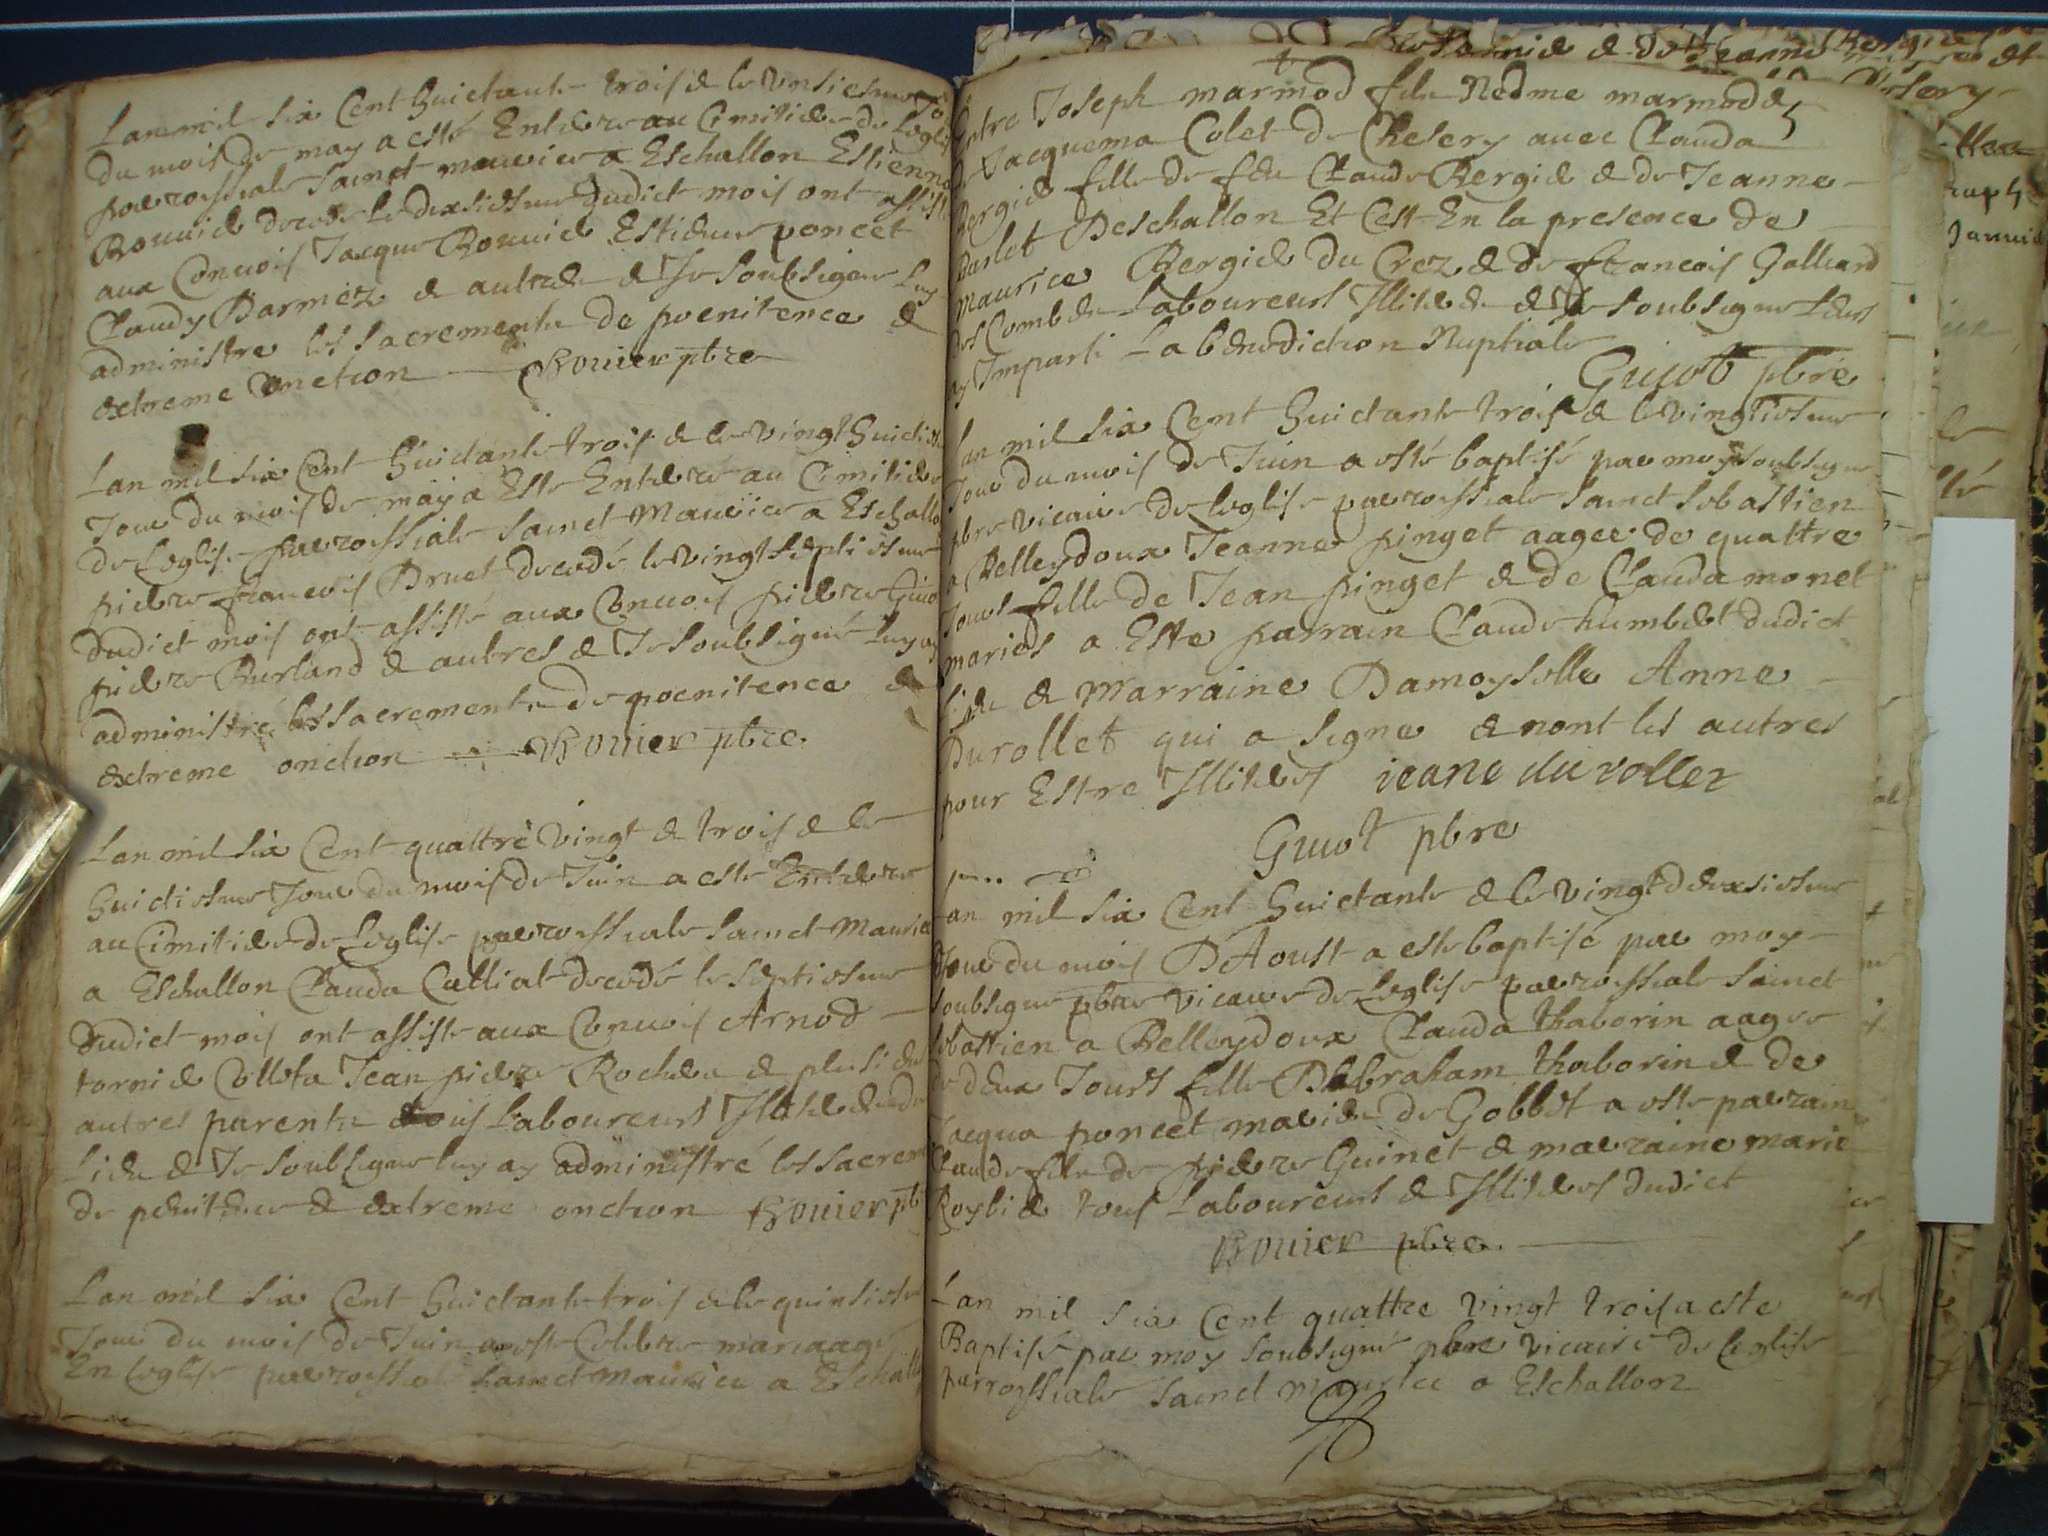 Lan mil six Cent huictante trois & le unsiesme Jo
du mois de may a esté Enterre au Cimitiere de Leglise
parrossiale sainct maurice a Eschallon Estienne
Bouvier decede le dixsiesme dudict mois ont assisté
aux Convois Jacque Bouvier Estienne poncet
Claudy Barmez & aultres & Je soubsigne Luy
administre les sacrements de poenitence &
extreme onction Bouvier pbre
Lan mil six Cent huictante trois & le vingt huictie
Jour du mois de may a Este Enterré au Cimitiere
de Leglise parrossiale sainct Maurice a Eschallo
pierre francois Druet decedé le vingt septiesme
dudict mois ont assisté aux Convois pierre Guio
pierre Burland & autres & Je soubsigné Luy ay
administré les sacrements de poenitence &
extreme onction Bouvier pbre
Lan mil six Cent quattre vingt & trois & le
huictiesme Jour du mois de Juin a este Enterre
au Cimitiere de Leglise parrossiale sainct Maurice
a Eschallon Clauda Calliat decedé le septiesme
dudict mois ont assiste aux Convois Arnod
tornier Colleta Jean pierre Rochea & plusieu
autres parents tous Laboureurs Illiteres du
Lieu & Je soubsigne luy ay administré les sacrem
de penitence & extreme onction Bouvier pb
Lan mil six Cent huictante trois & le quinsiesme
Jour du mois de Juin a este Celebre mariaage
En Leglise parrossiale sainct Maurice a Eschallo
Entre Joseph marmod fils Nedme marmod &
de Jacquema Colet de Chesery avec Clauda
Bergier fille de feu Claude Bergier & de Jeanne
Barlet Deschallon Et Cest En la presence de
Maurice Bergier du Crez & de francois Galliard
des Combes Laboureurs Illiteres & Je soubsigne Leurs
ay Imparti La benediction Nuptiale
Guiot pbre
Lan mil six Cent huictante trois & le vingtiesme
Jour du mois de Juin a esté baptisé par moy soubsigne
pbre vicaire de leglise parrossiale sainct sebastien
a Belleydoux Jeanne pinget aagee de quattre
Jours fille de Jean pinget & de Clauda monet
maries a Este parrain Claude humbert dudict
Lieu & Marraine Damoyselle Anne
Durollet qui a signe & nont les autres
pour Estre Illiteres ieane du roller
Guiot pbre
Lan mil six Cent huictante & le vingt deuxsiesme
Jour du mois DAoust a este baptisé par moy
soubsigne pbre vicaire de Leglise parrossiale sainct
sebastien a Belleydoux Clauda thaborin aagee
de deux Jours fille DAbraham thaborin & de
Jacqua poncet maries de Gobbet a este parrain
Claude fils de pierre Guinet & marraine marie
Roybier tous Laboureurs & Illiteres dudict
Bouvier pbre
Lan mil six Cent quattre vingt trois a este
Baptisé par moy soubsigné pbre vicaire de Leglise
parrossiale sainct Maurice a Eschallon